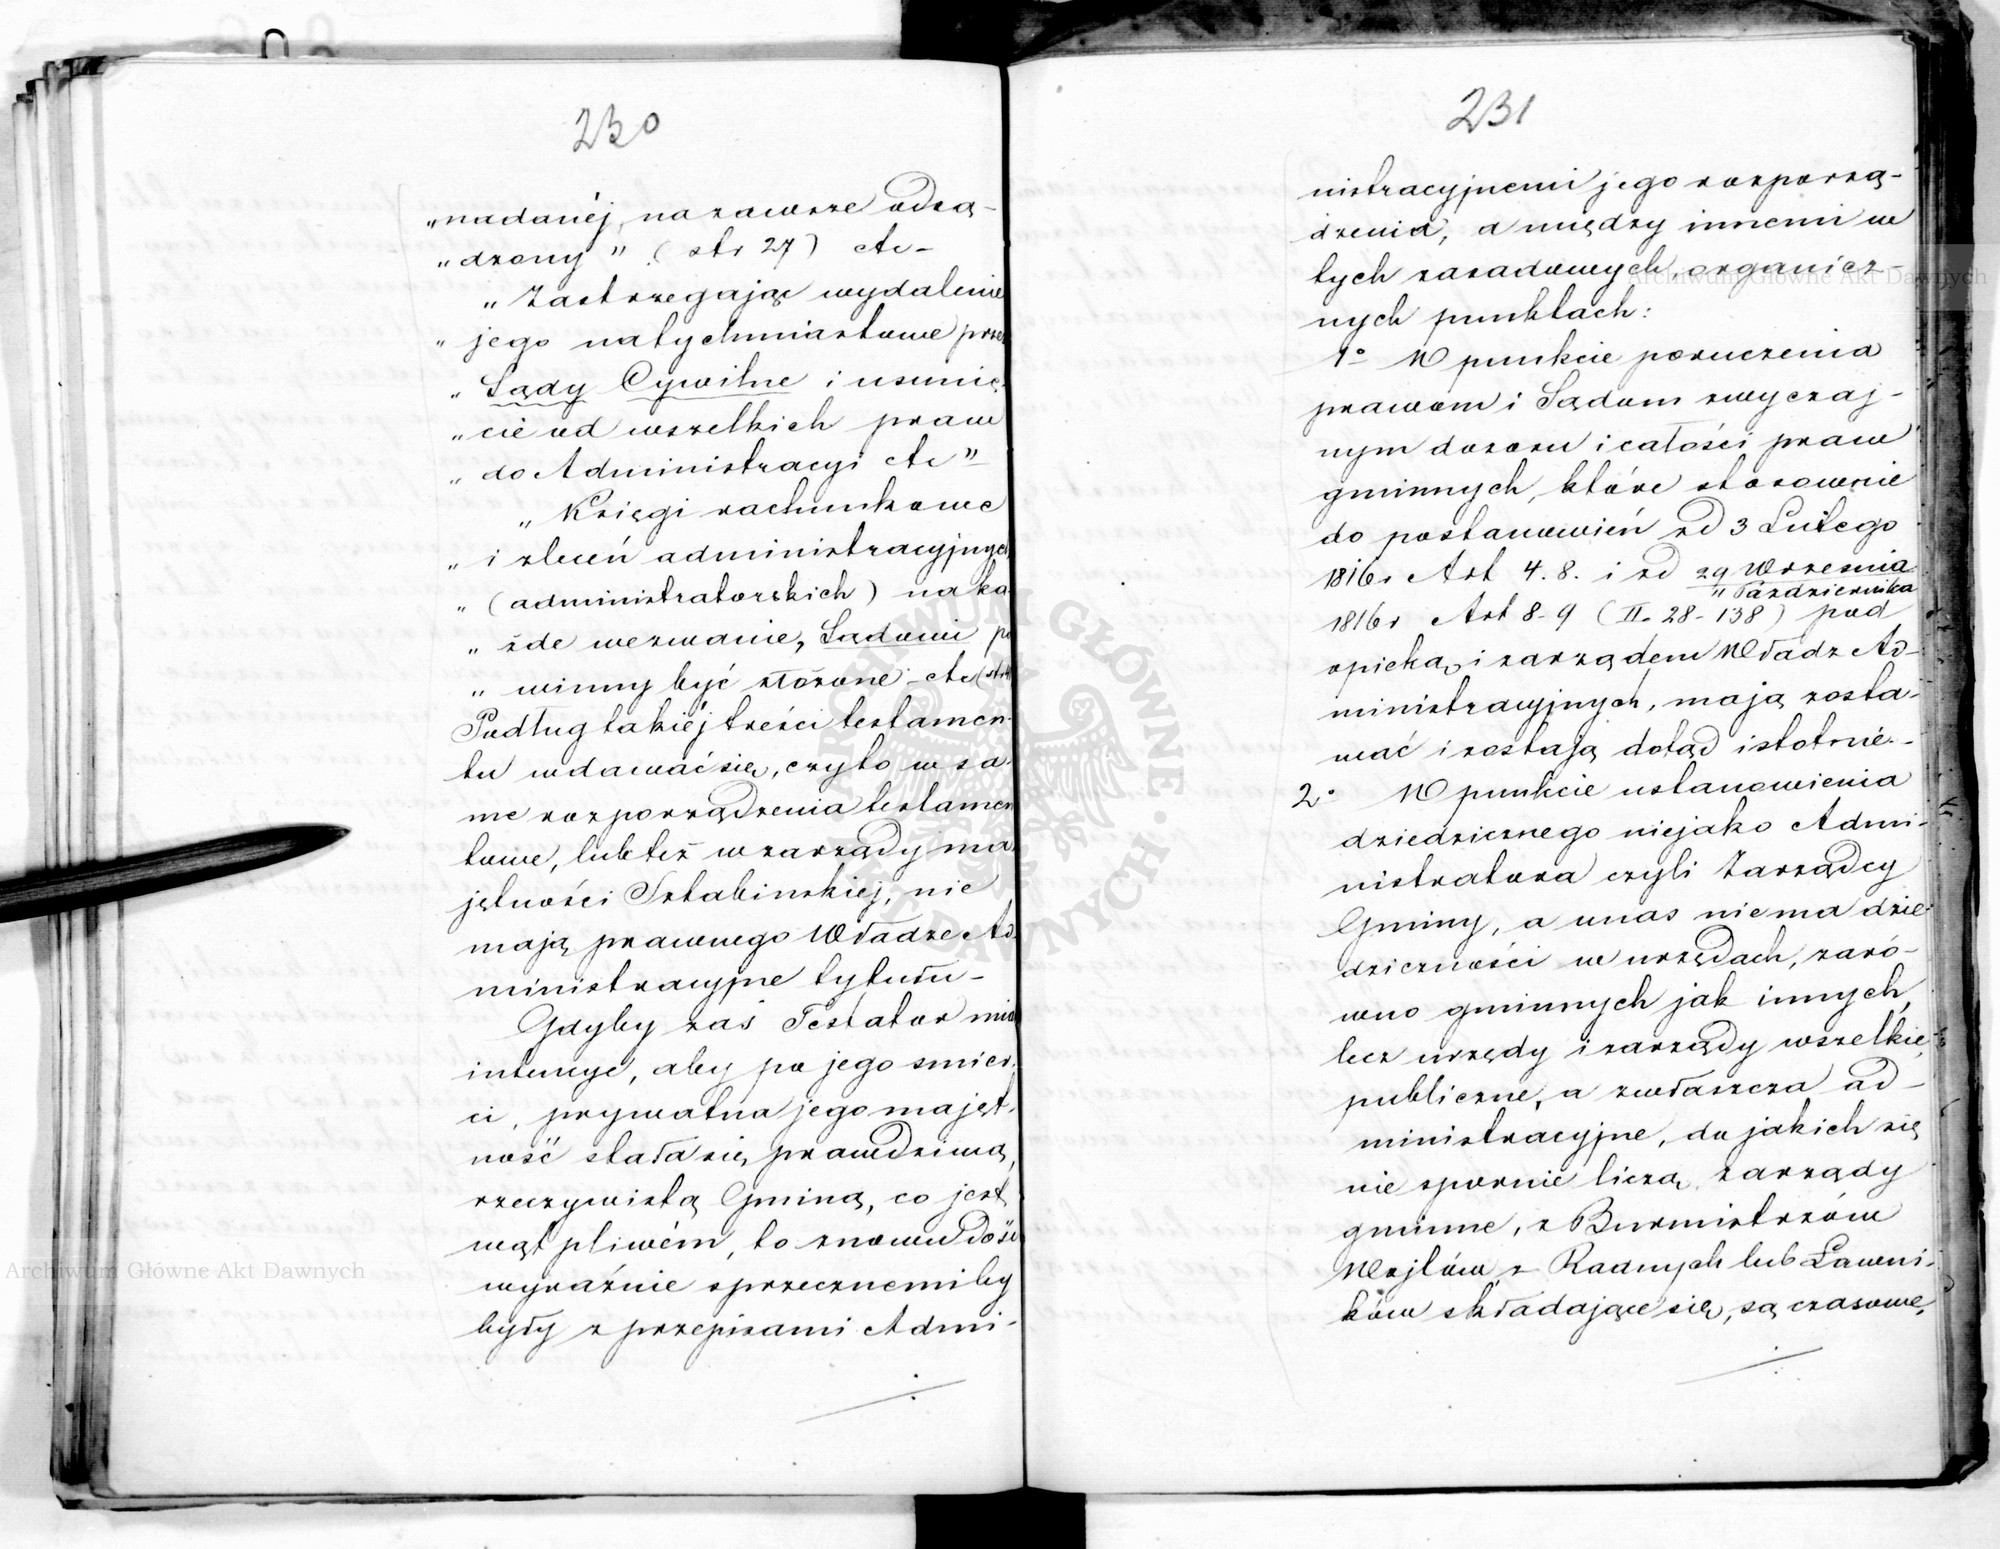 230
„nadanéj, na zawsze odsą-
„dzony" (str 27) etc-
„Zastrzegając wydalenie
„jego natychmiastowe przez
„Sądy Cywilne i usunię-
„cie od wszelkich praw
„do Administracyi etc"
„Księgi rachunkowe
„i zleceń administracyjnych
„(administratorskich) na ka-
„żde wezwanie, Sądowi po
„winny być złożone - etc (str
Podług takiéj treści testamen-
tu wdawać się, czyto w sa-
me rozporządzenia testamen
towe, lub też w zarządy ma-
jętności Sztabinskiej, nie
mają prawnego Władze Ad-
ministracyjne tytułu-
Gdyby zaś Testator miał
intencye, aby po jego smier-
ci, prywatna jego majęt-
ność stała się prawdziwą,
rzeczywistą Gminą, co jest
wątpliwém, to znowu dość
wyraźnie sprzecznemi by
były z przepisami Admi-
231
nistracyjnemi jego rozporzą-
dzenia, a między innemi w
tych zasadowych, organicz-
nych punktach:
1° W punkcie poruczenia
prawom i Sądom zwyczaj-
nym dozoru i całości praw
gminnych, które stosownie
do postanowień zd 3 Lutego
1816r Art 4. 8. i zd 29 Wrzesnia
" Pazdziernika
1816r Art 8-9 (II-28-138) pod
opieką i zarządem Władz Ad-
ministracyjnych, mają zosta-
wać i zostają dotąd istotnie.-
2° W punkcie ustanowienia
dziedzicznego niejako Admi-
nistratora czyli Zarządcy
Gminy, a unas niema dzie-
dziczności w urzędach, zaró-
wno gminnych jak innych,
lecz urzędy i zarządy wszelkie,
publiczne, a zwłaszcza ad-
ministracyjne, do jakich się
nie spornie liczą zarządy
gminne, z Burmistrzów
Wojtów, z Radnych lub Ławni-
ków składające się, są czasowe,
Archiwum Główne Akt Dawnych
Archiwum Główne Akt Dawnych